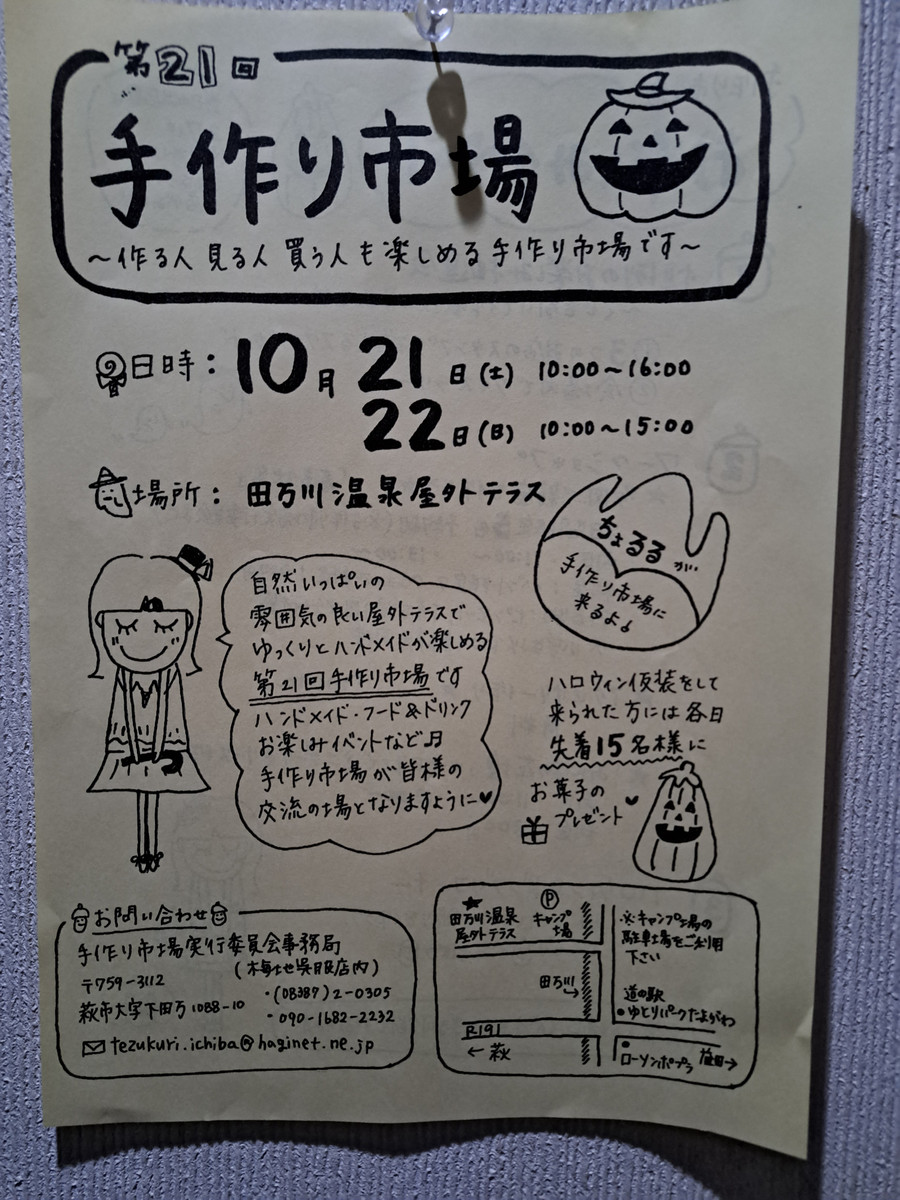 第21回
手作り市場
～作る人 見る人 買う人も楽しめる 手作り市場です～
日時：10月21日(土) 10:00～16:00
22日(日) 10:00～15:00
場所：田万川温泉屋外テラス
ちょるるが…
手作り市場に
来るよ♪
自然いっぱいの
雰囲気の良い屋外テラスで
ゆっくりとハンドメイドが楽しめる
第21回手作り市場です
ハンドメイド・フード&ドリンク
お楽しみイベントなど♫
手作り市場が皆様の
交流の場となりますように♥
ハロウィン仮装をして
来られた方には各日
先着15名様に
お菓子の
プレゼント♥
お問い合わせ
手作り市場実行委員会事務局
(梅地呉服店内)
〒759-3112
萩市大字下田万1088-10
・(08387)2-0305
・090-1682-2232
✉tezukuri.ichiba@haginet.ne.jp
★
田万川温泉
屋外テラス
Ⓟ
キャンプ場
※キャンプ場の
駐車場をご利用
下さい
田万川
道の駅
●ゆとりパークたまがわ
R191
←萩
●
ローソンポプラ
益田→